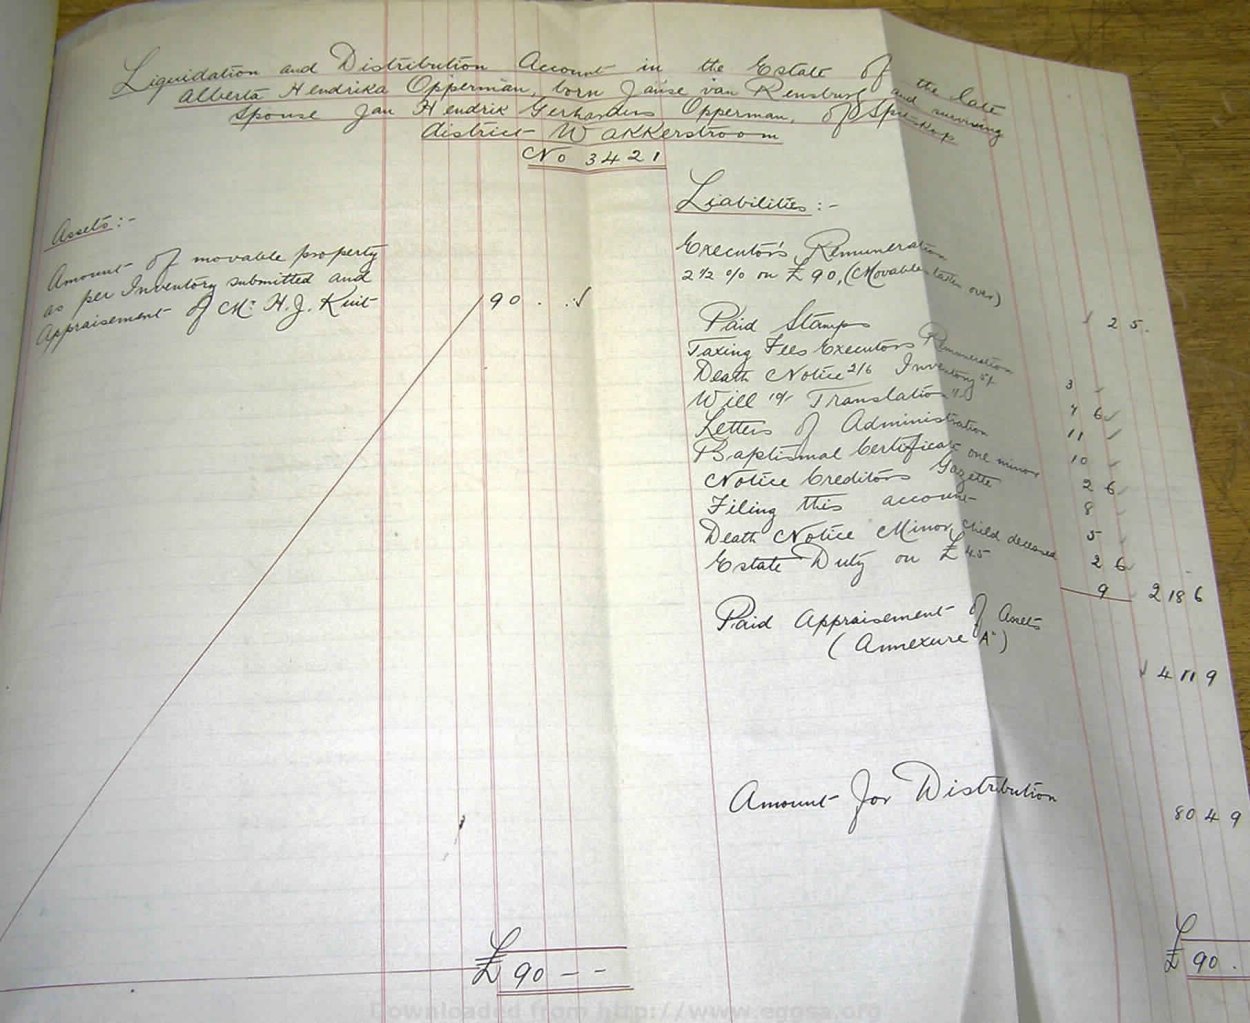 Liquidation and Distribution Account in the Estate of the late
Alberta Hendrika Opperman, born Janse van Rensburg and surviving
spouse Jan Hendrik Gerhardus Opperman, of Spitskop
district Wakkerstroom
No 3421
Assets:-
Amount of movable property
as per Inventory submitted and
Appraisement of Mr H.J. Kuit 90 . .
£ 90 - -
Liabilities:-
Executor's Remuneration
2 1/2 % on £90, (Movables taken over) 2 5 .
Paid Stamps
Taxing Fees Executors Remuneration 3
Death Notice 2/6 Inventory 5/- 7 6
Will 10/- Translation 1/- 11
Letters of Administration 10
Baptismal Certificate one minor 2 6
Notice Creditors Gazette 8
Filing this account 5
Death Notice Minor child deceased 2 6
Estate Duty on £45 9 2 18 6
Paid Appraisement of Assets
(Annexure "A") 4 11 9
Amount for Distribution 80 4 9
£ 90 .
Downloaded from http://www.eggsa.org